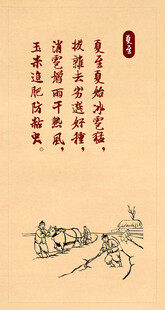 夏至
夏至夏始冰雹猛，
拔杂去劣选好种，
消雹增雨干热风，
玉米追肥防粘虫。